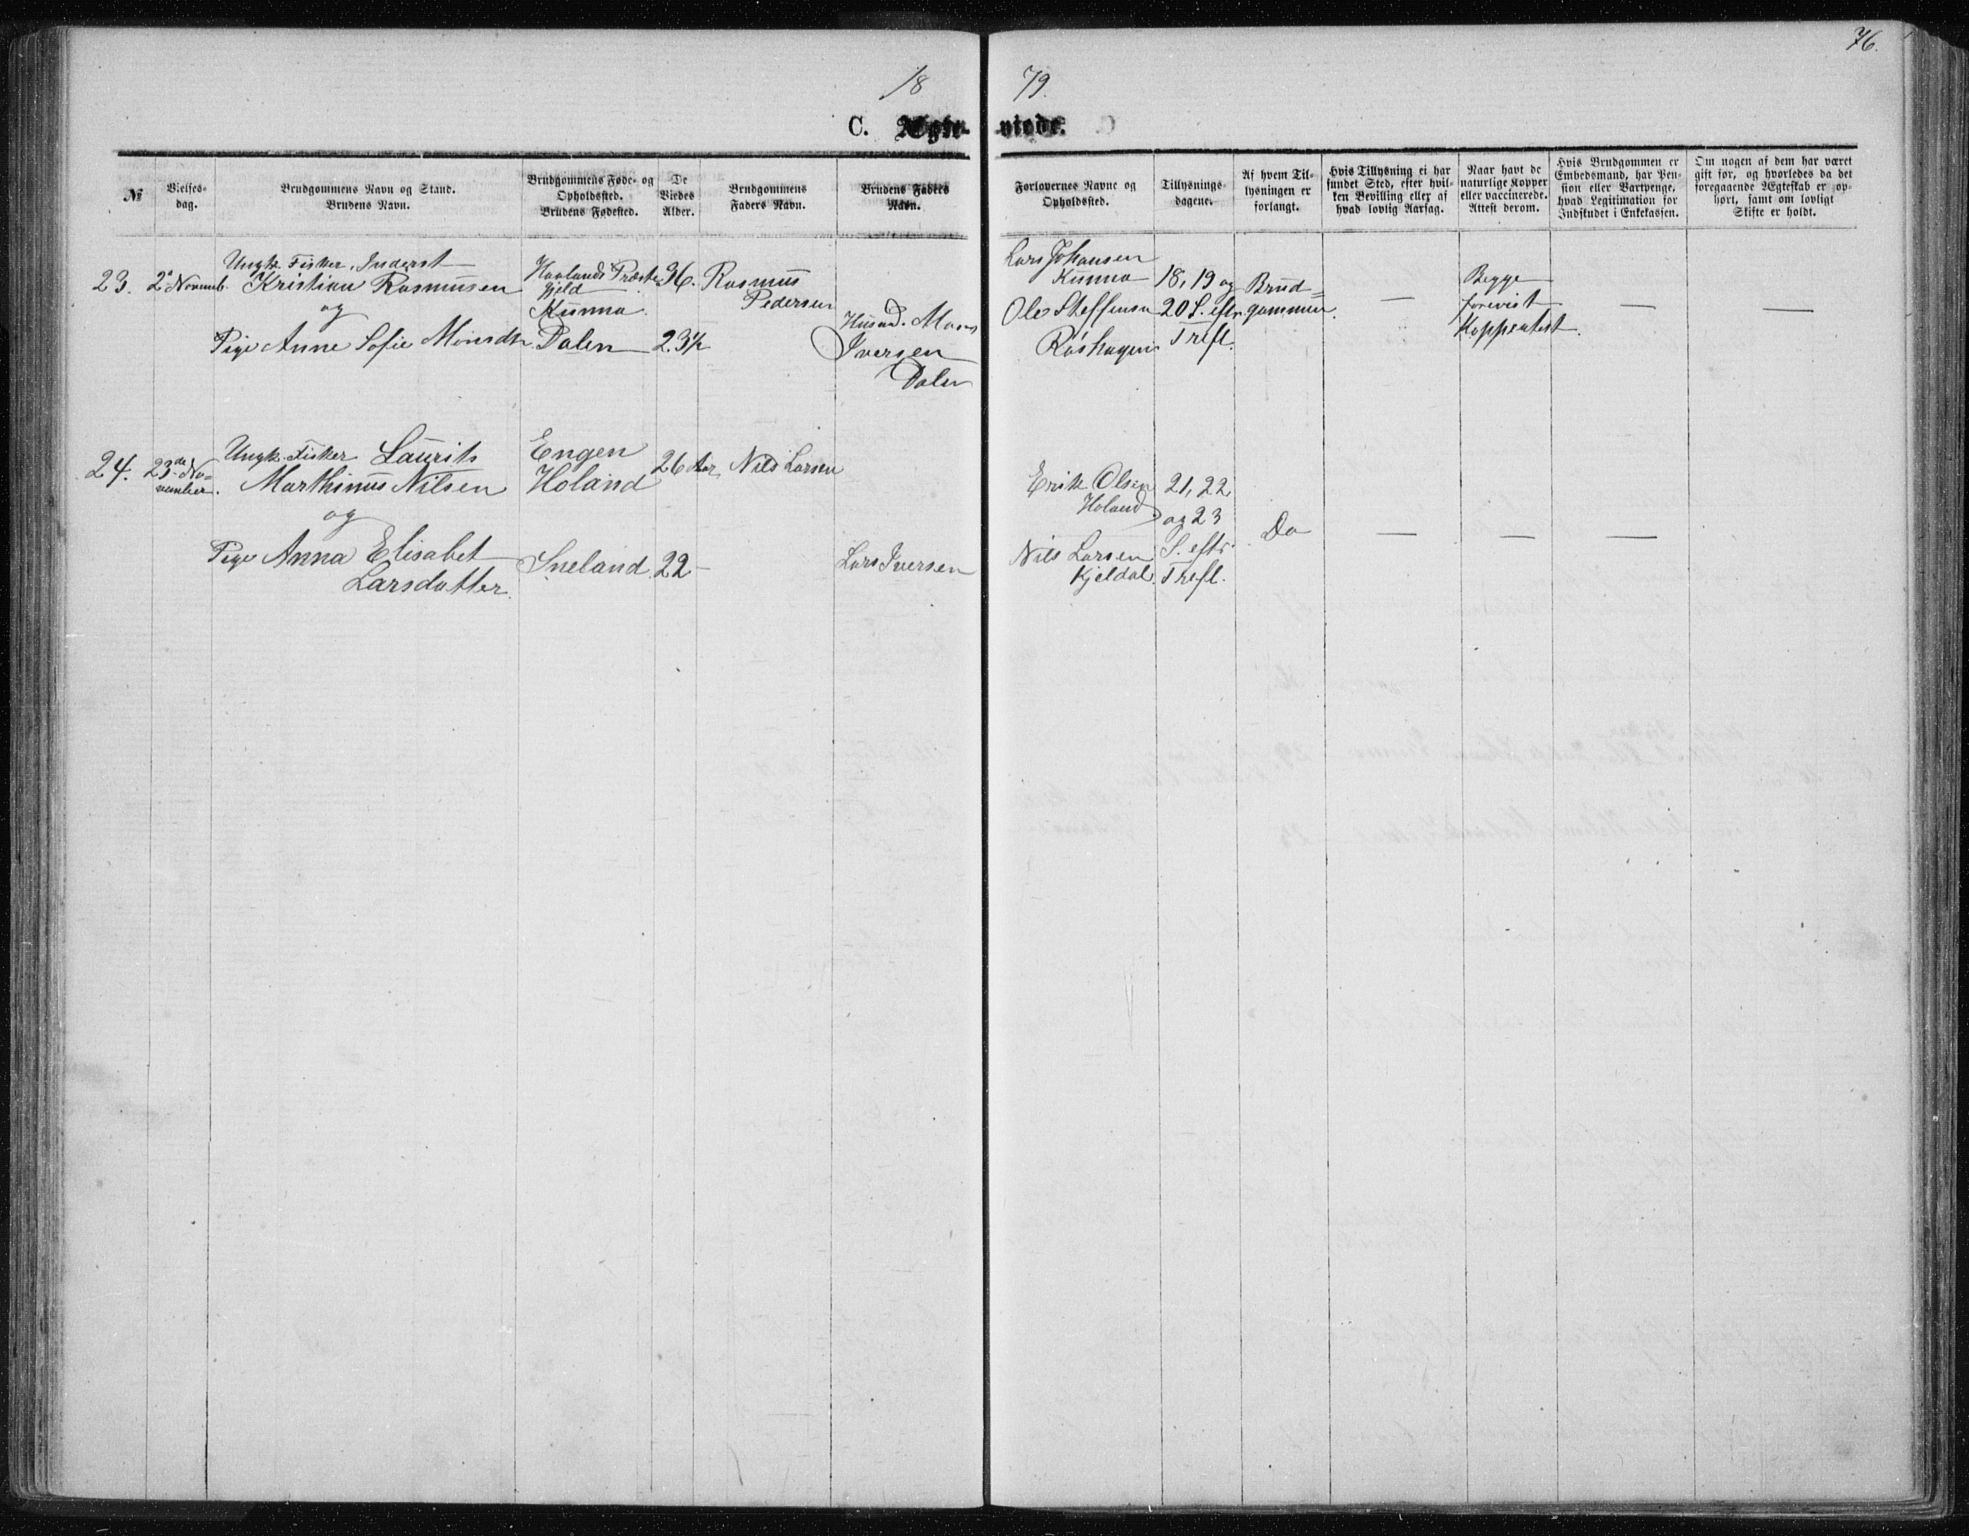 76.
18 79.
C. Ægte- viede.
№
Vielses-
dag.
Brudgommens Navn og Stand.
Brudens Navn.
Brudgommens Føde- og
Opholdssted.
Brudens Fødested.
De
Viedes
Alder.
Brudgommens
Faders Navn.
Brudens Faders
Navn.
Forlovernes Navne og
Opholdssted.
Tillysnings-
dagene.
Af hvem Til-
lysningen er
forlangt.
Hvis Tillysning ei har
fundet Sted, efter hvil-
ken Bevilling eller af
hvad lovlig Aarsag.
Naar havt de
naturlige Kopper
eller vaccinerede.
Attest derom.
Hvis Brudgommen er
Embedsmand, har Pen-
sion eller Vartpenge,
hvad Legitimation for
Indskudet i Enkekassen.
Om nogen af dem har været
gift før, og hvorledes da det
foregaaende Ægteskab er op-
hørt, samt om lovligt
Skifte er holdt.
23.
2 Novemb.
Ungk. Fisker, Inderst
Kristian Rasmussen
og
Pige Anne Sofie Monsdtr
Præste
gjeld
Kunna.
Dalen
36.
23½
Rasmus
Pedersen
Husmd. Mons
Iversen
Dalen
Lars Johansen
Kunna
Ole Steffensen
Røshagen
18, 19 og
20 S. eftr
Trefl.
Brud=
gommen.
—
Begge
forevist
Koppeatest.
—
—
24.
23de No=
vember.
Ungk. Fisker Laurits
Marthinus Nilsen
og
Pige Anna Elisabet
Larsdatter.
Engen
Holand
Sneland.
26 Aar
22 –
Nils Larsen
Lars Iversen
Erik Olsen
Holand
Nils Larsen
Kjeldal.
21, 22
og 23
S. eftr.
Trefl.
Do
—
—
—